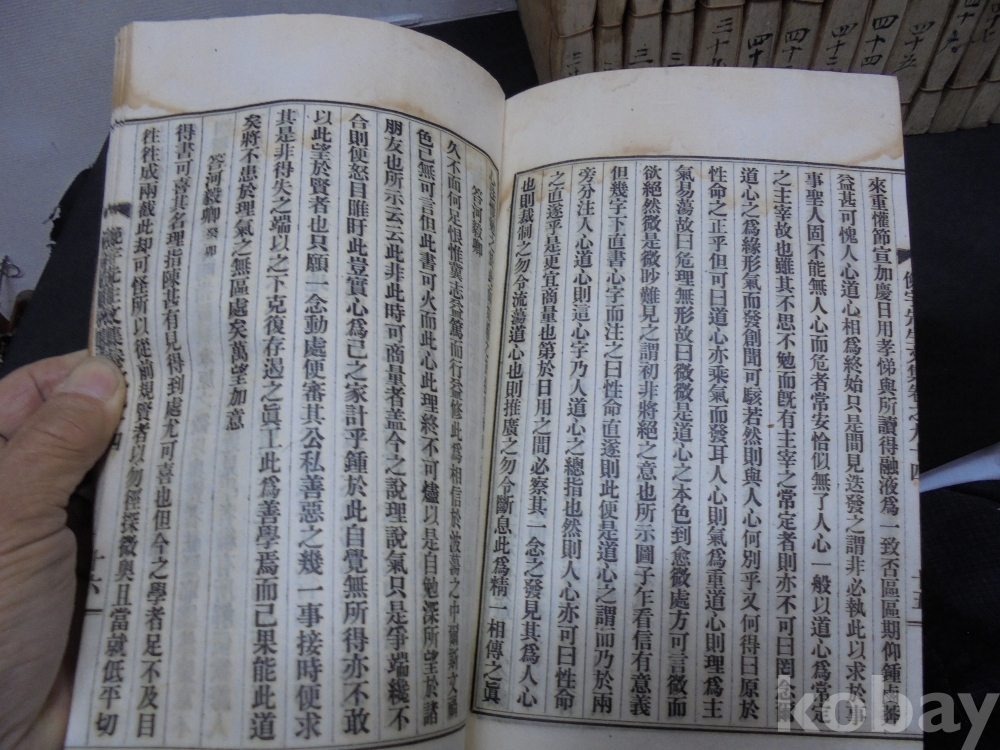 來重懽節宣加慶日用孝悌與所讀得融液爲一致否區區期仰鍾
益甚可愧人心道心相爲終始只是間見迭發之謂非必執此以求於事
事聖人固不能無人心而危者常安恰似無了人心一般以道心爲常定
之主宰故也雖其不思不勉而旣有主宰之常定者則亦不可曰罔念
道心之爲緣形氣而發創聞可駭若然則與人心何別乎又何得曰原於
性命之正乎但可曰道心亦乘氣而發耳人心則氣爲重道心則理爲主
氣易蕩故曰危理無形故曰微微是道心之本色到愈微處方可言微而
欲絕然微是微眇難見之謂初非將絕之意也所示圖子乍看信有意義
但幾字下直書心字而注之曰性命直遂則此便是道心之謂而乃於兩
旁分注人心道心則這心字乃人道心之總指也然則人心亦可曰性命
之直遂乎是更宜商量也第於日用之間必察其一念之發見其爲人心
也則裁制之勿令流蕩道心也則推廣之勿令斷息此爲精一相傳之眞
答河毅卿
久不面何足恨惟冀志益篤而行益修此爲相信於
色已無可言但此書可火而此心此理終不可燼以是自勉深所望於諸
朋友也所示云云此非此時可商量者盖今之說理說氣只是爭端纔不
合則便怒目睢盱此豈實心爲己之家計乎鍾於此自覺無所得亦不敢
以此望於賢者也只願一念動處便審其公私善惡之幾一事接時便求
其是非得失之端以之下克復存遏之眞工此爲善學焉而已果能此道
矣將不患於理氣之無區處矣萬望加意
答河毅卿 癸卯
得書可喜其名理指陳甚有見得到處尤可喜也但今之學者足不及目
往往成兩截此却可怪所以從前規賢者以勿徑深微奧且當就低平切
十六
十五
三十九
四十
四十三
四十四
四十五
四十六
kobay